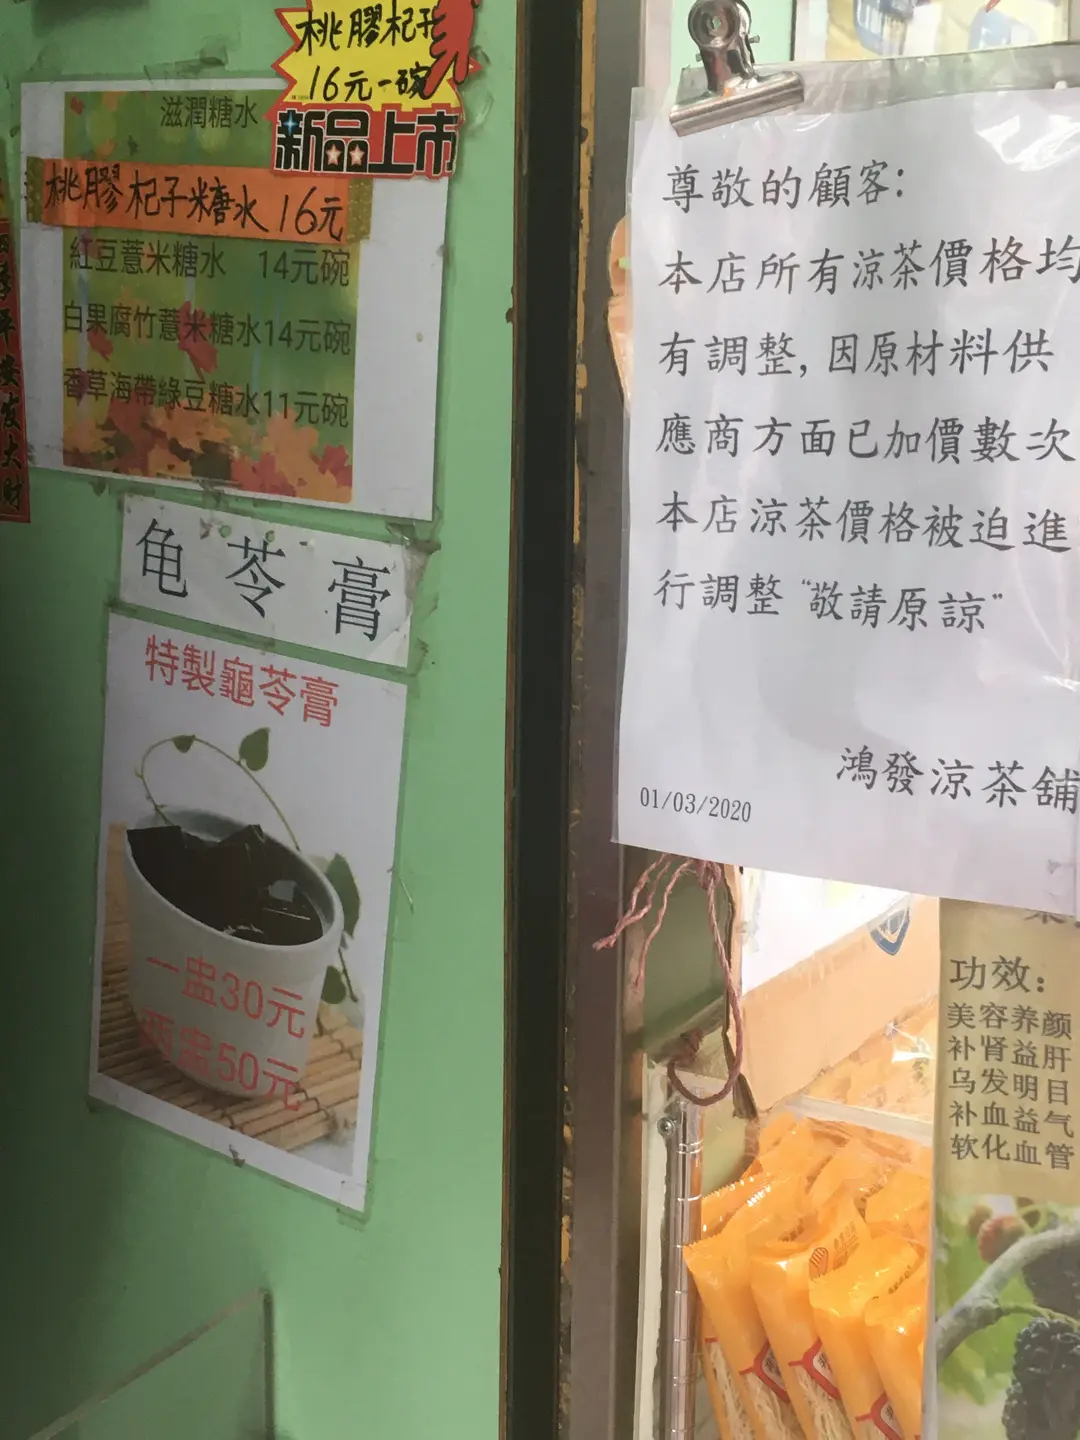 桃膠杞子
16元一碗
新品上市
滋潤糖水
桃膠杞子糖水 16元
紅豆薏米糖水 14元碗
白果腐竹薏米糖水14元碗
香草海帶綠豆糖水11元碗
龟苓膏
特製龜苓膏
一盅30元
两盅50元
尊敬的顧客:
本店所有涼茶價格均
有調整,因原材料供
應商方面已加價數次
本店涼茶價格被迫進
行調整“敬請原諒”
鴻發涼茶舖
01/03/2020
功效:
美容养颜
补肾益肝
乌发明目
补血益气
软化血管